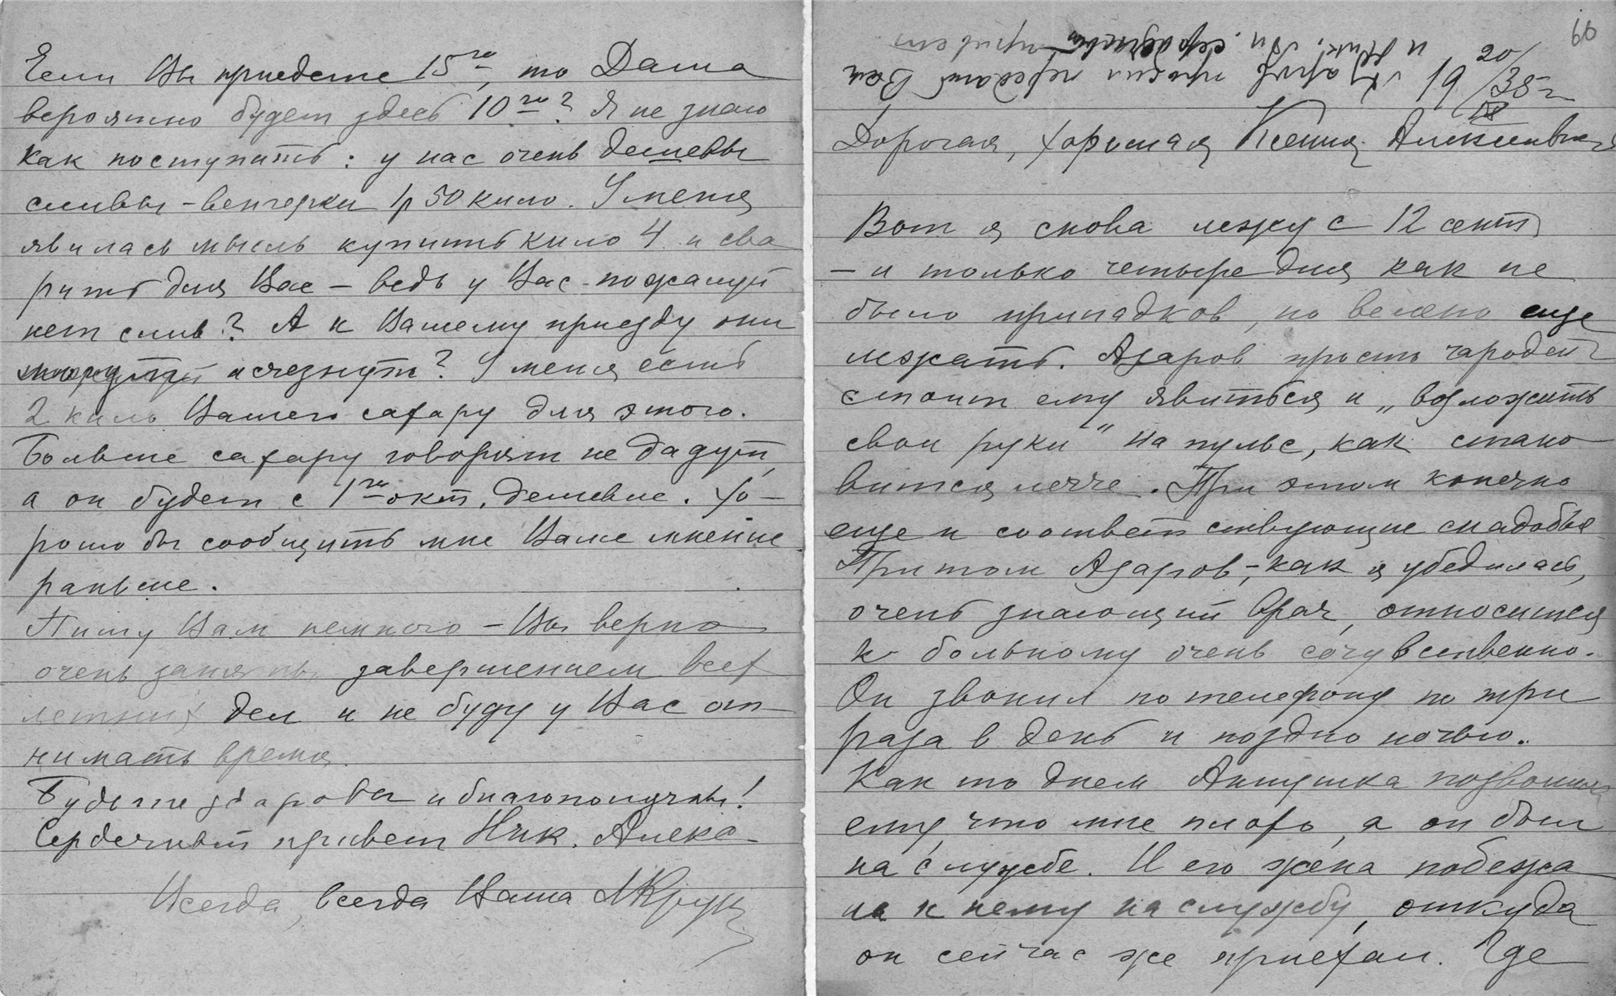 Если Вы приедете 15го, то Даша
вероятно будет здесь 10го? Я не знаю
как поступить: у нас очень дешевы
сливы - венгерки 1р 50 кило. У меня
явилась мысль купить кило 4 и сва
рить для Вас – ведь у Вас пожалуй
нет слив? А к Вашему приезду они
могут исчезнуть? У меня есть
2 кило Вашего сахару для этого.
Больше сахару говорят не дадут,
а он будет с 1го окт. дешевле. Хо-
рошо бы сообщить мне Ваше мнение
раньше.
Пишу Вам немного – Вы верно
очень заняты завершением всех
летних дел и не буду у Вас от-
нимать время.
Будьте здоровы и благополучны!
Сердечный привет Ник. Алекс-
Всегда, всегда Ваша
60
Азаров просил передать Вам
и Ник. Ал. сердечный привет
19 20/IX 35 г
Дорогая, хорошая Ксения Алексеевна
Вот я снова лежу с 12 сент
– и только четыре дня как не
было припадков, но велено еще
лежать. Азаров просто чародей
стоит ему явиться и „возложить
свои руки" на пульс, как стано
вится легче. При этом конечно
еще и соответствующие снадобья
Притом Азаров –, как я убедилась,
очень знающий врач, относится
к больному очень сочувственно.
Он звонил по телефону по три
раза в день и поздно ночью.
Как то днем Аннушка позвонила
ему что мне плохо, а он был
на службе. И его жена побежа
ла к нему на службу, откуда
он сейчас же приехал. Где